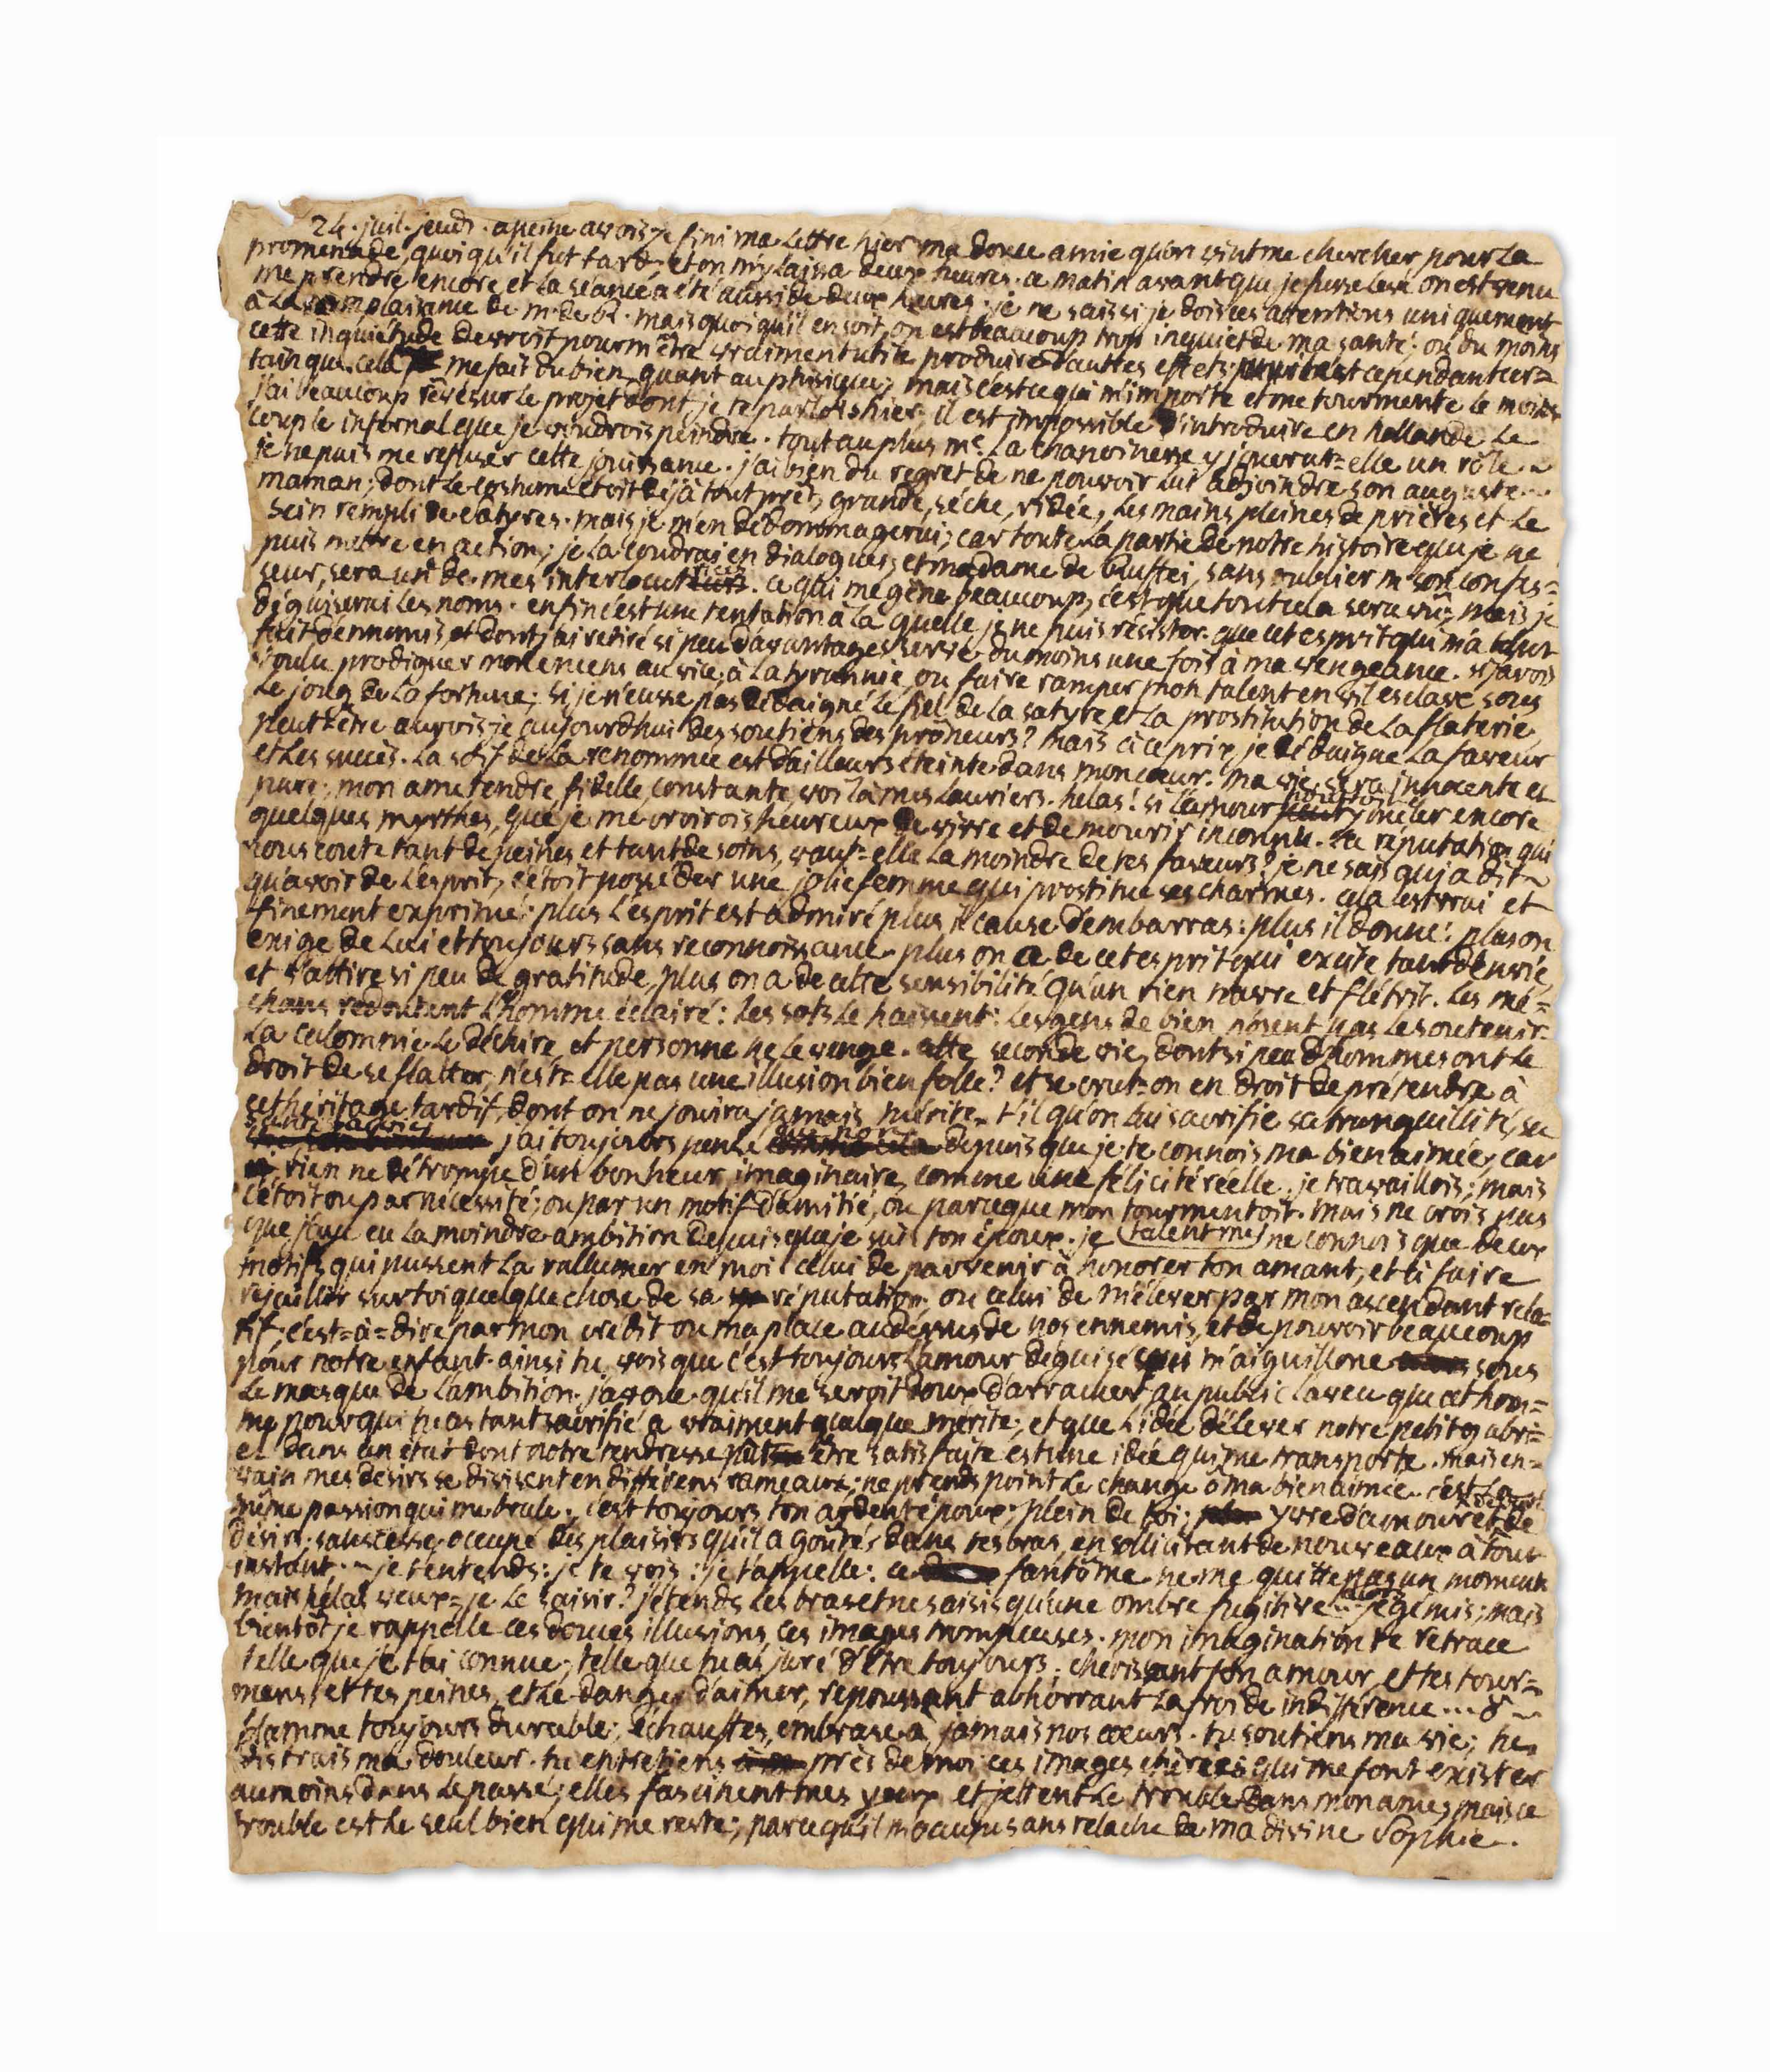 24. juil. jeudi. apeine avois-je fini ma lettre hier ma douce amie qu'on vint me chercher pour la
promenade, quoiqu'il fut tard, et on m'y laissa deux heures. ce matin avant que je fusse levé on est venu
me prendre encore et la séance a été aussi de deux heures. je ne sais si je dois ces attentions uniquement
à la complaisance de m. de R. mais quoiqu'il en soit, on est beaucoup trop inquiet de ma santé; ou du moins
cette inquiétude devroit pour m'être vraiment utile produire d'autres effets; il est cependant cer=
tain que cela me fait du bien, quant au phisique; mais c'est ce qui m'importe et me tourmente le moins
j'ai beaucoup rêvé sur le projet dont je te parlois hier. il est impossible d'introduire en hollande le
couple infernal que je voudrois peindre. tout au plus me. la chanoinesse y jouerat=elle un rôle ..
je ne puis me refuser cette jouissance. j'ai bien du regret de ne pouvoir lui adjoindre son auguste ...
maman; dont le costume étoit déjà tout prêt, grande, sèche, ridée, les mains pleines de prières et le
sein rempli de satyres. mais je m'en dédommagerai; car toute la partie de notre histoire que je ne
puis mettre en action; je la coudrai en dialogues; et madame de Ruffei, sans oublier m son confes=
seur, sera un de mes interlocutrices. ce qui me gêne beaucoup, c'est que tout cela sera vu; mais je
déguiserai les noms. enfin c'est une tentation à la quelle je ne puis résister. que cet esprit qui m'a tant
fait d'ennemis, et dont j'ai retiré si peu d'avantages serve du moins une fois à ma vengeance. si j'avois
voulu prodiguer mon encens au vice, à la tyrannie, ou faire ramper mon talent en vil esclave sous
le joug de la fortune; si je n'eusse pas dédaigné le fiel de la satyre et la prostitution de la flaterie,
peut=être aurois-je aujourd'hui des soutiens des prôneurs? mais à ce prix, je dédaigne la faveur
et les succès. la soif de la renommée est d'ailleurs éteinte dans mon cœur. ma vie sera innocente et
pure; mon ame tendre, fidelle, constante, voilà mes lauriers. helas! si l'amour pouvoit y mêler encore
quelques myrthes, que je me croirois heureux de vivre et de mourir inconnu. la réputation qui
nous coute tant de peines et tant de soins, vaut=elle la moindre de tes faveurs? je ne sais qui a dit
qu'avoir de l'esprit, c'étoit posséder une jolie femme qui prostitue ses charmes. cela est vrai et
finement exprimé: plus l'esprit est admiré plus il cause d'embarras: plus il donne: plus on
exige de lui et toujours sans reconnoissance. plus on a de cet esprit qui excite tant d'envie
et s'attire si peu de gratitude, plus on a de cette sensibilité qu'un rien navre et flétrit. les mé=
chans redoutent l'homme éclairé: les sots le haïssent: les gens de bien n'osent pas le soutenir.
la calomnie le déchire et personne ne le venge. cette seconde vie, dont si peu d'hommes ont le
droit de se flatter, n'est=elle pas une illusion bien folle? et se crut=on en droit de prétendre à
cet héritage tardif, dont on ne jouira jamais, mérite=t'il qu'on lui sacrifie sa tranquillité, sa
santé sa vie; j'ai toujours pensé que non depuis que je te connois ma bien aimée, car
rien ne détrompe d'un bonheur imaginaire, comme une félicité réelle. je travaillois; mais
c'étoit ou par nécessité; ou par un motif d'amitié, ou parceque mon talent me tourmentoit. mais ne crois pas
que j'aye eu la moindre ambition depuis que je suis ton époux. je ne connois que deux
motifs qui pussent la rallumer en moi: celui de parvenir à honorer ton amant, et à faire
rejaillir sur toi quelque chose de sa réputation; ou celui de m'élever par mon ascendant rela=
tif; c'est=à=dire par mon crédit ou ma place audessus de nos ennemis, et de pouvoir beaucoup
pour notre enfant. ainsi tu vois que c'est toujours l'amour déguisé qui m'aiguillone sous
le masque de l'ambition. j'avoue qu'il me seroit doux d'arracher au public l'aveu que cet hom=
me pour qui tu as tant sacrifié a vraiment quelque mérite; et que l'idée d'élever notre petit gabri=
el dans un état dont notre tendresse pût être satisfaite est une idée qui me transporte. mais en=
vain mes désirs se divisent en différens rameaux; ne prends point le change ô ma bien aimée. c'est la
même passion qui me brule; c'est toujours ton ardent époux; plein de toi; yvre d'amour et de
désirs; sans cesse occupé des plaisirs qu'il a goûtés dans tes bras, en sollicitant de nouveaux à tout
instant ... je t'entends: je te vois: je t'appelle: ce fantôme ne me quitte pas un moment
mais hélas veux=je le saisir? j'étends les bras et ne saisis qu'une ombre fugitive ... je gémis; mais
bientôt je rappelle ces douces illusions, ces images trompeuses. mon imagination te retrace
telle que je t'ai connue; telle que tu as juré d'être toujours; chérissant ton amour, et tes tour=
mens, et tes peines, et le danger d'aimer, repoussant abhorrant la froide indifférence ... ô ...
flamme toujours durable; échauffes, embrase à jamais nos cœurs. tu soutiens ma vie; tu
distrais ma douleur. tu entretiens près de moi ces images chéries qui me font exister
aumoins dans le passé; elles fascinent mes yeux et jettent le trouble dans mon ame; mais ce
trouble est le seul bien qui me reste; parcequ'il m'occupe sans relache de ma divine Sophie.